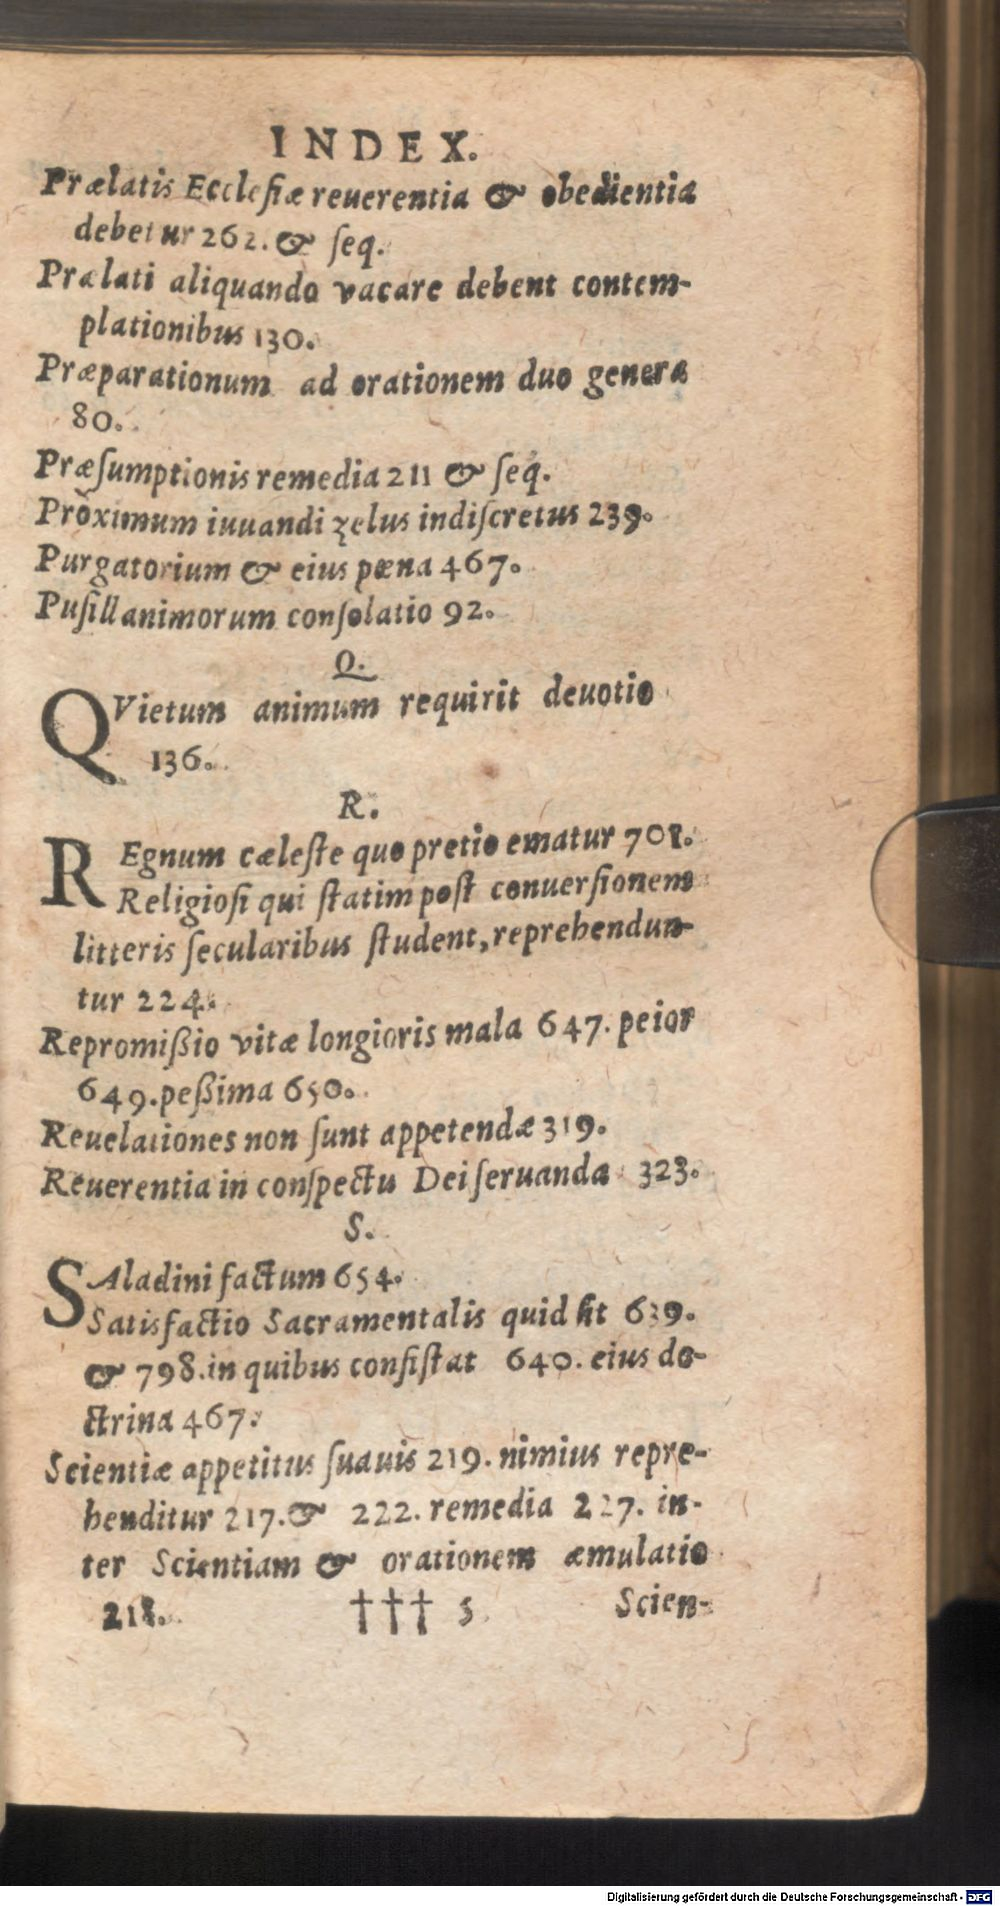 INDEX.
Prælatis Ecclesiæ reuerentia & obedientia
debetur 262. & seq.
Prælati aliquando vacare debent contem-
plationibus 130.
Præparationum ad orationem duo genera
80.
Præsumptionis remedia 211 & seq.
Proximum iuuandi zelus indiscretus 239.
Purgatorium & eius pœna 467.
Pusillanimorum consolatio 92.
Q.
QVietum animum requirit deuotio
136.
R.
REgnum cæleste quo pretio ematur
Religiosi qui statim post conuersionem
litteris secularibus student, reprehendun-
tur 224.
Repromißio vitæ longioris mala 647. peior
649. peßima 650.
Reuelationes non sunt appetendæ 319.
Reuerentia in conspectu Dei seruanda 323.
S.
SAladini factum 654.
Satisfactio Sacramentalis quid sit 639.
& 798. in quibus consistat 640. eius do-
ctrina 467.
Scientiæ appetitus suauis 219. nimius repre-
henditur 217. & 222. remedia 227. in-
ter Scientiam & orationem æmulatio
218. ††† 5 Scien-
Digitalisierung gefördert durch die Deutsche Forschungsgemeinschaft - DFG